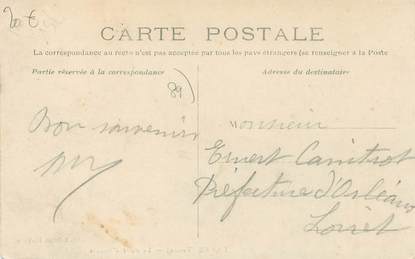 20 €
CARTE POSTALE
La correspondance au recto n'est pas acceptée par tous les pays étrangers (se renseigner à la Poste
Partie réservée à la correspondance
Adresse du destinataire
89
Bon souvenir
Monsieur
Ernest
Préfecture d'Orléans
Loiret